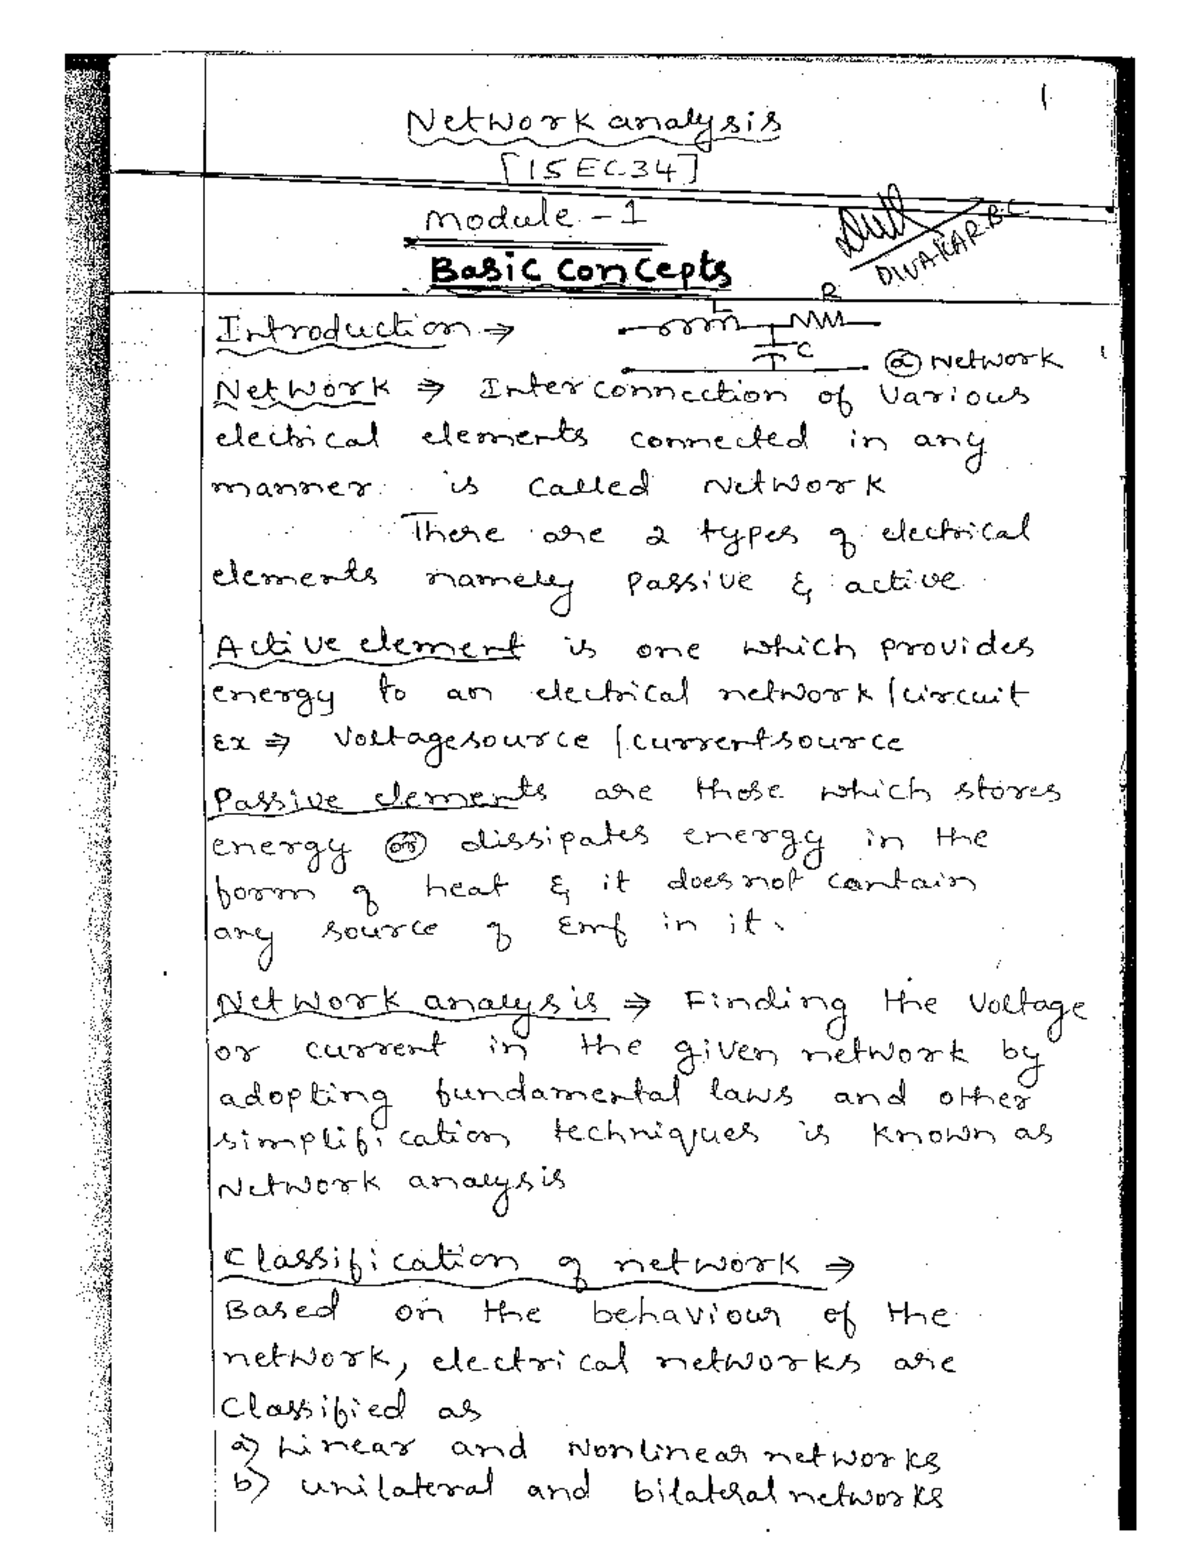 1
Network analysis
[15EC34]
Module - 1
DIVAKAR.B.C
Basic Concepts
Introduction ⇒
L
R
C
ⓐ Network
Network ⇒ Interconnection of various
electrical elements connected in any
manner is called Network
There are 2 types of electrical
elements namely passive & active.
Active element is one which provides
energy to an electrical network/circuit
Ex ⇒ Voltagesource / currentsource
Passive elements are those which stores
energy or dissipates energy in the
form of heat & it does not contain
any source of Emf in it.
Network analysis ⇒ Finding the voltage
or current in the given network by
adopting fundamental laws and other
simplification techniques is known as
Network analysis
Classification of network ⇒
Based on the behaviour of the
network, electrical networks are
classified as
a) Linear and Nonlinear networks
b) unilateral and bilateral networks